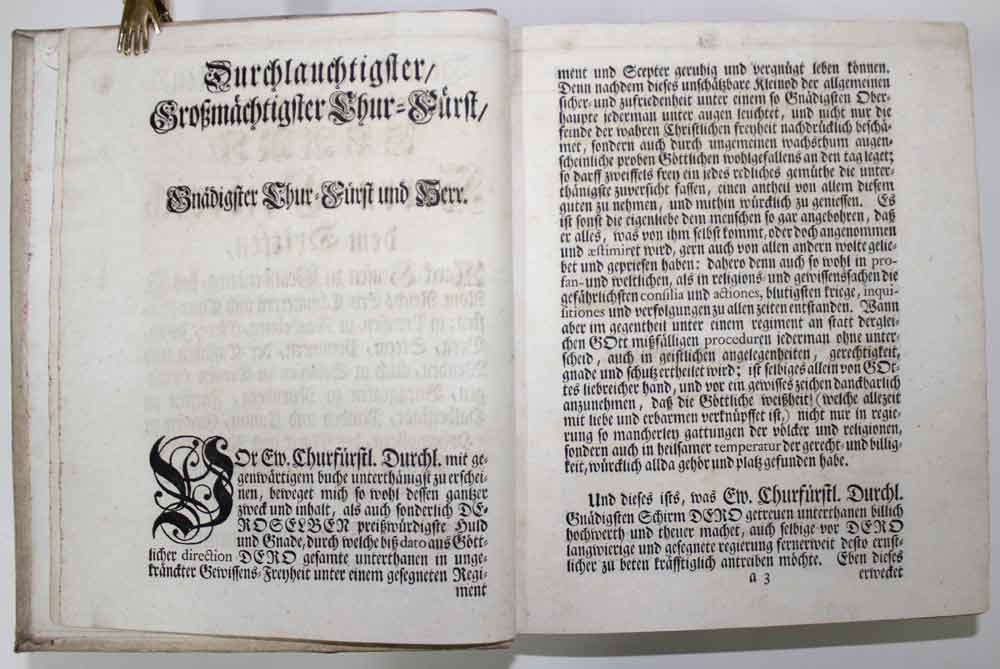 Durchlauchtigster/
Großmächtigster Chur-Fürst/
Gnädigster Chur-Fürst und Herr.
VOr Ew. Churfürstl. Durchl. mit ge-
genwärtigem buche unterthänigst zu erschei-
nen, beweget mich so wohl dessen gantzer
zweck und inhalt, als auch sonderlich DE-
ROSELBEN preißwürdigste Huld
und Gnade, durch welche biß dato aus Gött-
licher direction DERO gesamte unterthanen in unge-
kränckter Gewissens-Freyheit unter einem gesegneten Regi-
ment
ment und Scepter geruhig und vergnügt leben können.
Denn nachdem dieses unschätzbare Kleinod der allgemeinen
sicher- und zufriedenheit unter einem so Gnädigsten Ober-
haupte jederman unter augen leuchtet, und nicht nur die
feinde der wahren Christlichen freyheit nachdrücklich beschä-
met, sondern auch durch ungemeinen wachsthum augen-
scheinliche proben Göttlichen wohlgefallens an den tag leget;
so darff zweiffels frey ein jedes redliches gemüthe die unter-
thänigste zuversicht fassen, einen antheil von allem diesem
guten zu nehmen, und mithin würcklich zu geniessen. Es
ist sonst die eigenliebe dem menschen so gar angebohren, daß
er alles, was von ihm selbst kommt, oder doch angenommen
und æstimiret wird, gern auch von allen andern wolte gelie-
bet und gepriesen haben: dahero denn auch so wohl in pro-
fan- und weltlichen, als in religions- und gewissenssachen die
gefährlichsten consilia und actiones, blutigsten kriege, inqui-
sitiones und verfolgungen zu allen zeiten entstanden. Wann
aber im gegentheil unter einem regiment an statt derglei-
chen GOtt mißfälligen proceduren jederman ohne unter-
scheid, auch in geistlichen angelegenheiten, gerechtigkeit,
gnade und schutz ertheilet wird; ist selbiges allein von GOt-
tes liebreicher hand, und vor ein gewisses zeichen danckbarlich
anzunehmen, daß die Göttliche weißheit (welche allezeit
mit liebe und erbarmen verknüpffet ist,) nicht nur in regie-
rung so mancherley gattungen der völcker und religionen,
sondern auch in heilsamer temperatur der gerecht- und billig-
keit, würcklich allda gehör und platz gefunden habe.
Und dieses ists, was Ew. Churfürstl. Durchl.
Gnädigsten Schirm DERO getreuen unterthanen billich
hochwerth und theuer machet, auch selbige vor DERO
langwierige und gesegnete regierung fernerweit desto ernst-
licher zu beten kräfftiglich antreiben möchte. Eben dieses
a 3
erwecket